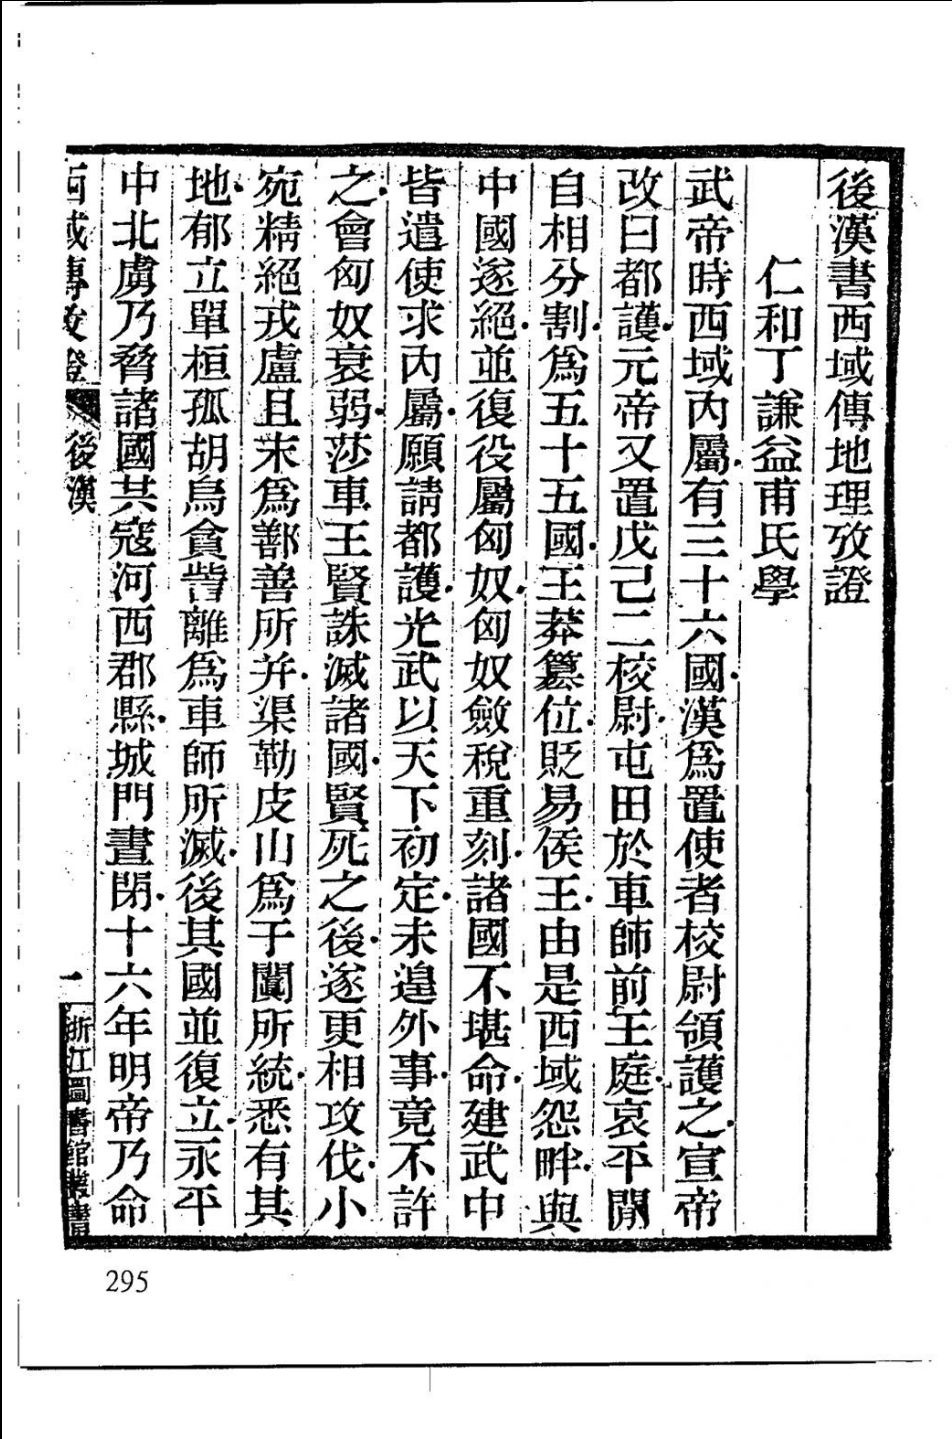 後漢書西域傳地理攷證
仁和丁謙益甫氏學
武帝時西域內屬.有三十六國.漢爲置使者校尉領護之.宣帝
改曰都護.元帝又置戊己二校尉.屯田於車師前王庭.哀平閒
自相分割.爲五十五國.王莽簒位.貶易侯王.由是西域怨畔.與
中國遂絕.並復役屬匈奴.匈奴斂稅重刻.諸國不堪命.建武中
皆遣使求內屬.願請都護.光武以天下初定.未遑外事.竟不許
之.會匈奴衰弱.莎車王賢誅滅諸國.賢死之後.遂更相攻伐.小
宛精絕戎盧且末爲鄯善所并.渠勒皮山爲于闐所統.悉有其
地.郁立單桓孤胡烏貪訾離爲車師所滅.後其國並復立.永平
中北虜乃脅諸國共寇河西郡縣.城門晝閉.十六年明帝乃命
西域傳攷證 後漢 一 浙江圖書館叢書
295